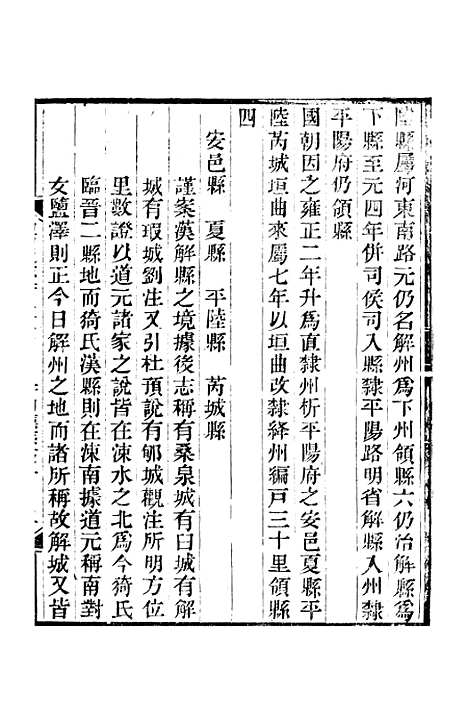 陸縣屬河東南路元仍名解州爲下州領縣六仍治解縣爲
下縣至元四年併司侯司入縣隸平陽路明省解縣入州隸
平陽府仍領縣
國朝因之雍正二年升爲直隸州析平陽府之安邑夏縣平
陸芮城垣曲來屬七年以垣曲改隸絳州編戶三十里領縣
四
安邑縣 夏縣 平陸縣 芮城縣
謹案漢解縣之境據後志稱有桑泉城有臼城有解
城有瑕城劉注又引杜預說有郇城觀注所明方位
里數證以道元諸家之說皆在涑水之北爲今猗氏
臨晉二縣地而猗氏漢縣則在涑南據道元稱南對
女鹽澤則正今日解州之地而諸所稱故解城又皆